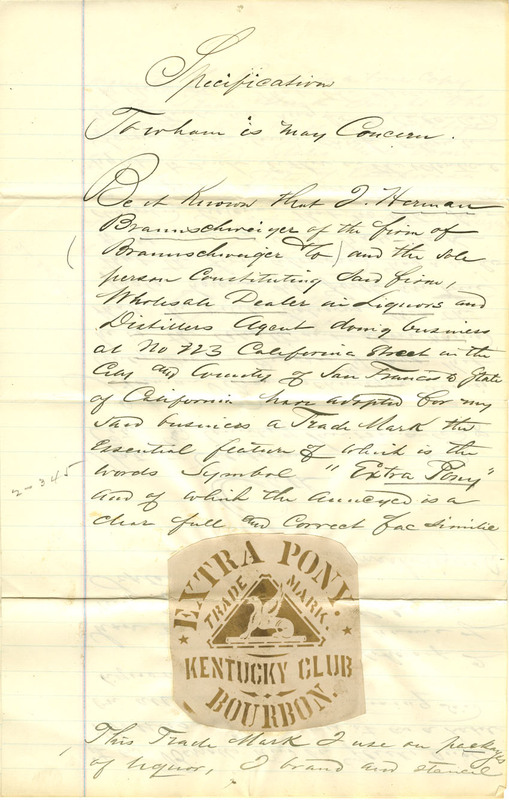 Specification
To whom is may Concern.
Be it Known that I. Herman
Braunschweiger of the firm of
(Braunschweiger & Co) and the sole
person Constituting said firm,
Wholesale Dealer in Liquors and
Distillers Agent doing business
at No 723 California Street in the
City and County of San Francisco State
of California have adopted for my
said business a Trade Mark the
essential feature of which is the
words Symbol "Extra Pony"
and of which the annexed is a
clear full and Correct fac simile
2-345
EXTRA PONY.
TRADE MARK.
KENTUCKY CLUB
BOURBON.
This Trade Mark I use on packages
of liquor, I brand and stencil